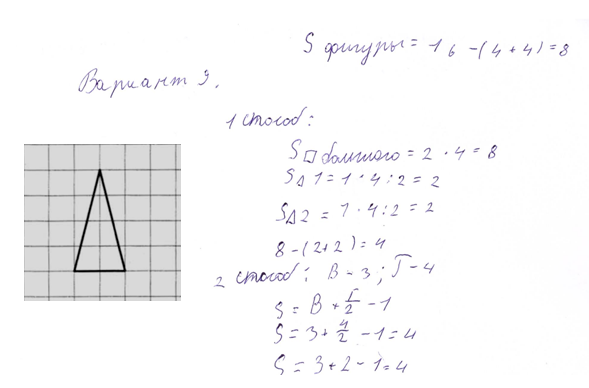 S фигуры = 16 - (4 + 4) = 8
Вариант 9.
1 способ:
S□ большого = 2 · 4 = 8
S△1 = 1 · 4 : 2 = 2
S△2 = 1 · 4 : 2 = 2
8 - (2+2) = 4
2 способ: В - 3; Г - 4
S = В + Г/2 - 1
S = 3 + 4/2 - 1 = 4
S = 3 + 2 - 1 = 4